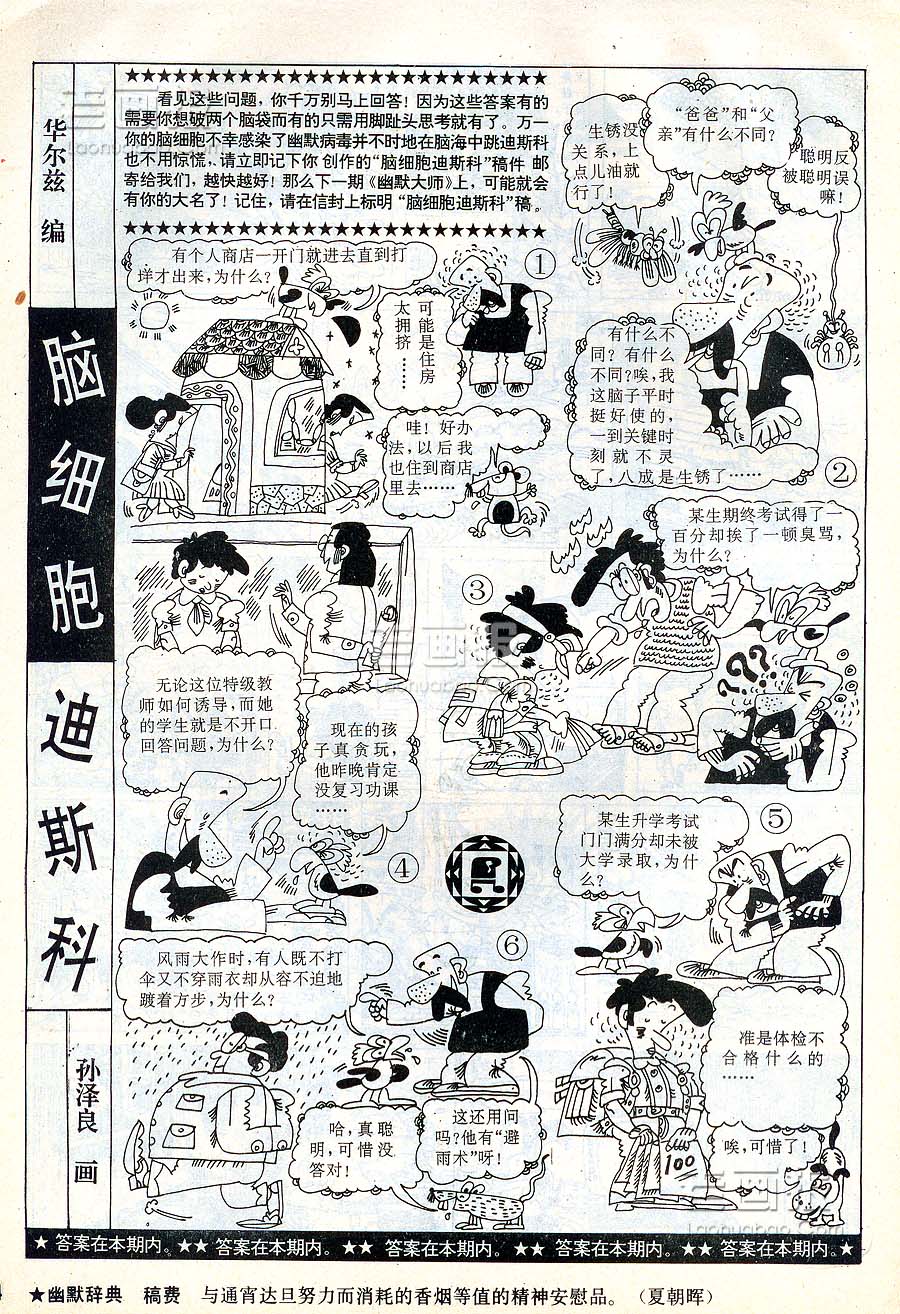 华尔兹 编
脑细胞迪斯科
孙泽良 画
★★★★★★★★★★★★★★★★★★★★★★★★★★★★
看见这些问题，你千万别马上回答！因为这些答案有的
需要你想破两个脑袋而有的只需用脚趾头思考就有了。万一
你的脑细胞不幸感染了幽默病毒并不时地在脑海中跳迪斯科
也不用惊慌，请立即记下你创作的“脑细胞迪斯科”稿件 邮
寄给我们，越快越好！那么下一期《幽默大师》上，可能就会
有你的大名了！记住，请在信封上标明“脑细胞迪斯科”稿。
★★★★★★★★★★★★★★★★★★★★★★★★★★★★
①
有个人商店一开门就进去直到打
烊才出来，为什么？
可能是住房
太拥挤……
哇！好办
法，以后我
也住到商店
里去……
②
“爸爸”和“父
亲”有什么不同？
有什么不
同？有什么
不同？唉，我
这脑子平时
挺好使的，
一到关键时
刻就不灵
了，八成是生锈了……
生锈没
关系，上
点儿油就
行了！
聪明反
被聪明误
嘛！
③
某生期终考试得了一
百分却挨了一顿臭骂，
为什么？
???
④
无论这位特级教
师如何诱导，而她
的学生就是不开口
回答问题，为什么？
现在的孩
子真贪玩，
他昨晚肯定
没复习功课
……
⑤
某生升学考试
门门满分却未被
大学录取，为什
么？
准是体检不
合格什么的
……
唉，可惜了！
100
⑥
风雨大作时，有人既不打
伞又不穿雨衣却从容不迫地
踱着方步，为什么？
这还用问
吗？他有“避
雨术”呀！
哈，真聪
明，可惜没
答对！
★ 答案在本期内。★★ 答案在本期内。★★ 答案在本期内。★★ 答案在本期内。★★ 答案在本期内。★
★幽默辞典 稿费 与通宵达旦努力而消耗的香烟等值的精神安慰品。（夏朝晖）
老画报
laohuabao.com